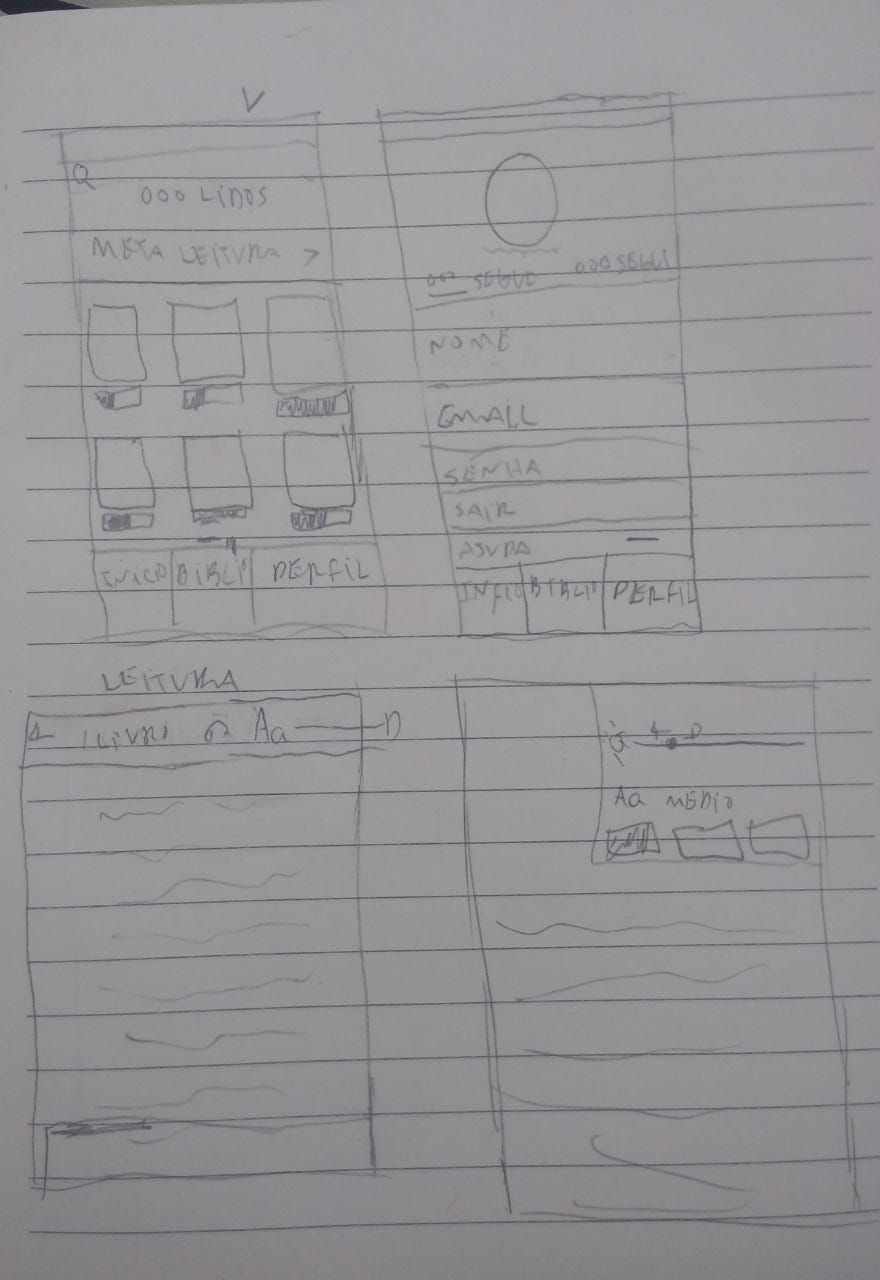 V
000 LIDOS
META LEITURA >
INICIO BIBLI PERFIL
000 SEGUI
NOME
GMAIL
SENHA
SAIR
INICIO BIBLI PERFIL
LEITURA
LIVRO Aa
Aa MEDIO